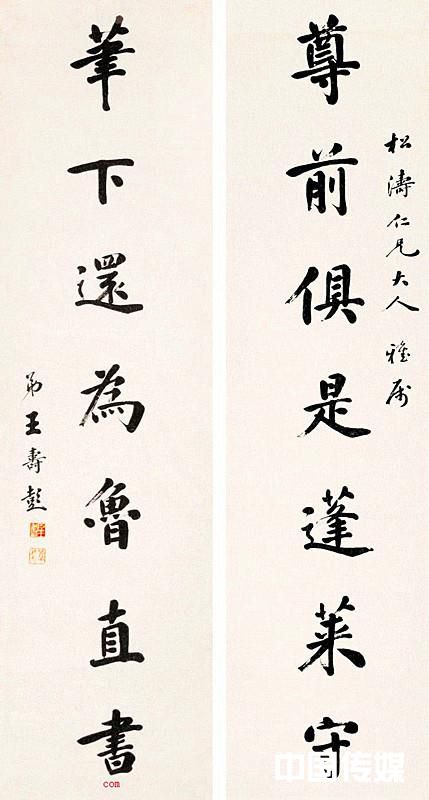 松濤仁兄大人 雅屬
尊前俱是蓬萊守
筆下還為魯直書
弟王壽彭
中国传媒
com